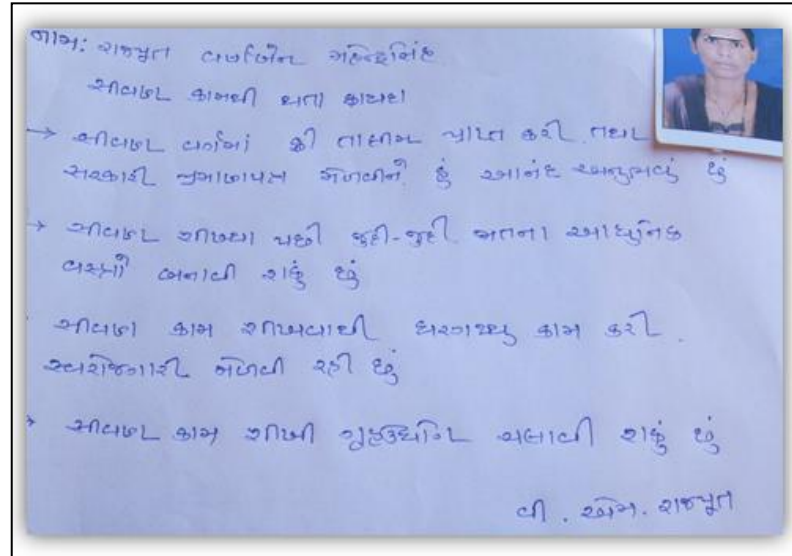 નામ: રાજપૂત વર્ષાબેન મહેન્દ્રસિંહ
સીવણ કામથી થતા ફાયદા
→ સીવણ વર્ગમાં ફ્રી તાલીમ પ્રાપ્ત કરી તથા
સરકારી પ્રમાણપત્ર મેળવીને હું આનંદ અનુભવું છું
→ સીવણ શીખ્યા પછી જુદી-જુદી જાતના આધુનિક
વસ્ત્રો બનાવી શકું છું
સીવણ કામ શીખવાથી ઘરગથ્થુ કામ કરી.
સ્વરોજગારી મેળવી રહી છું
→ સીવણ કામ શીખી ગૃહઉદ્યોગ ચલાવી શકું છું
વી. એમ. રાજપૂત